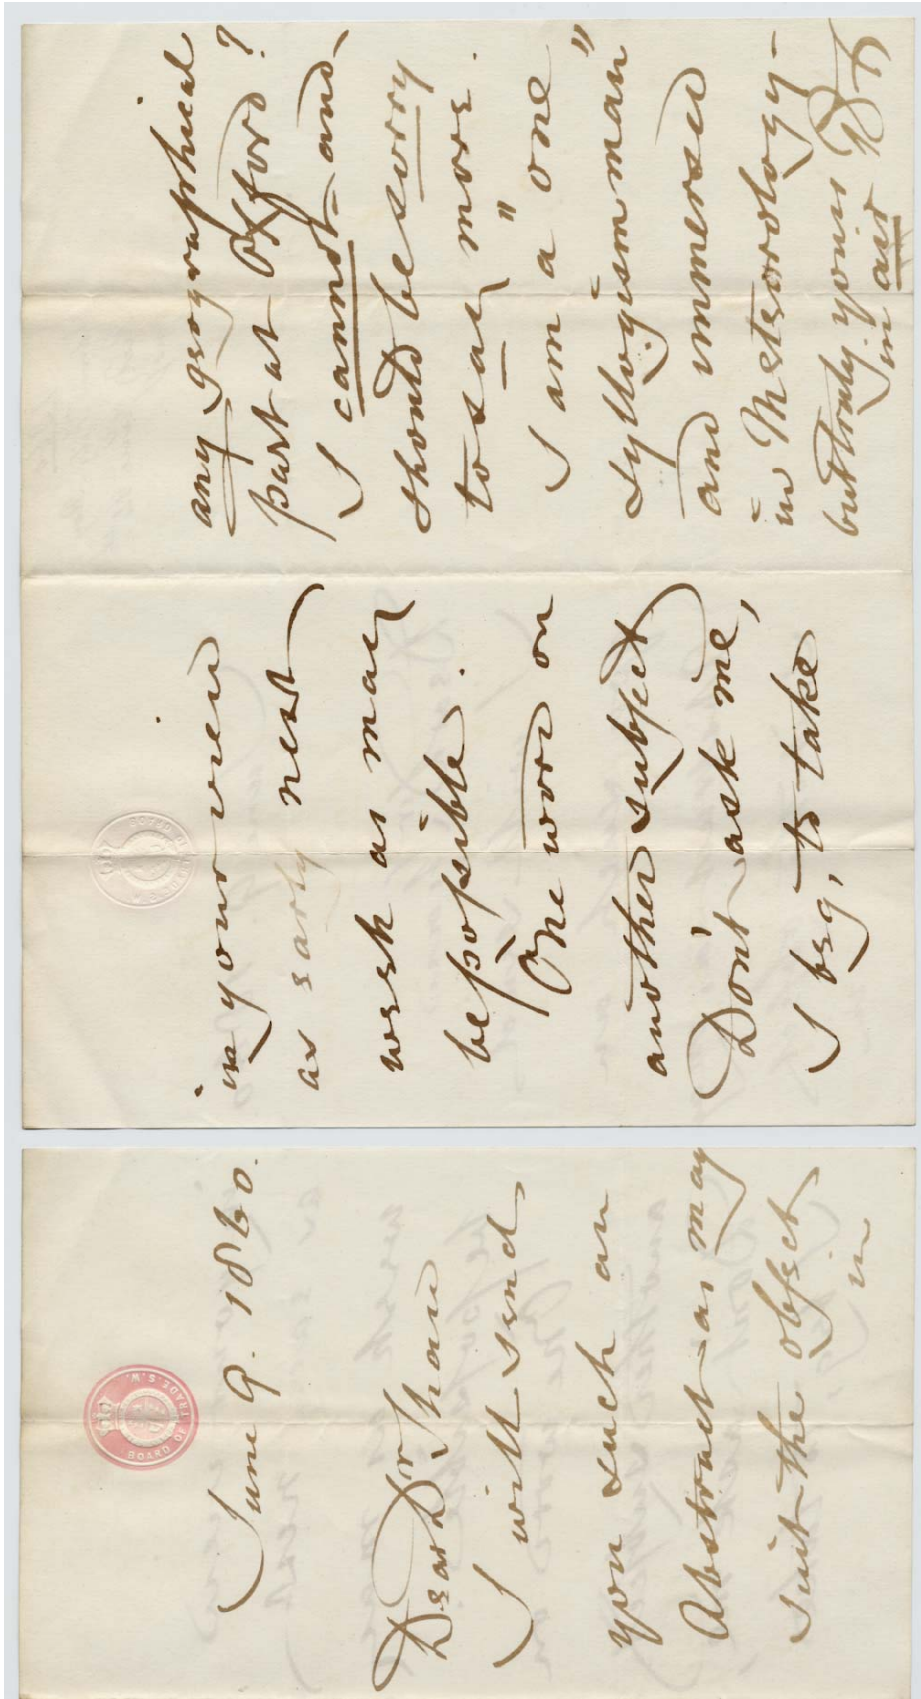 BOARD OF TRADE. S.W.
June 9. 1860.
Dear Dr Shaw
I will send
you such an
Abstract as may
suit the object
in
in your view
as early next
week as may
be possible.
One word on
another subject
Don't ask me,
I beg, to take
any geographical
part at Oxford?
I cannot - and -
should be sorry
to say "more.
I am a "one
syllogism man"
and immersed
in Meteorology -
but truly yours
in air